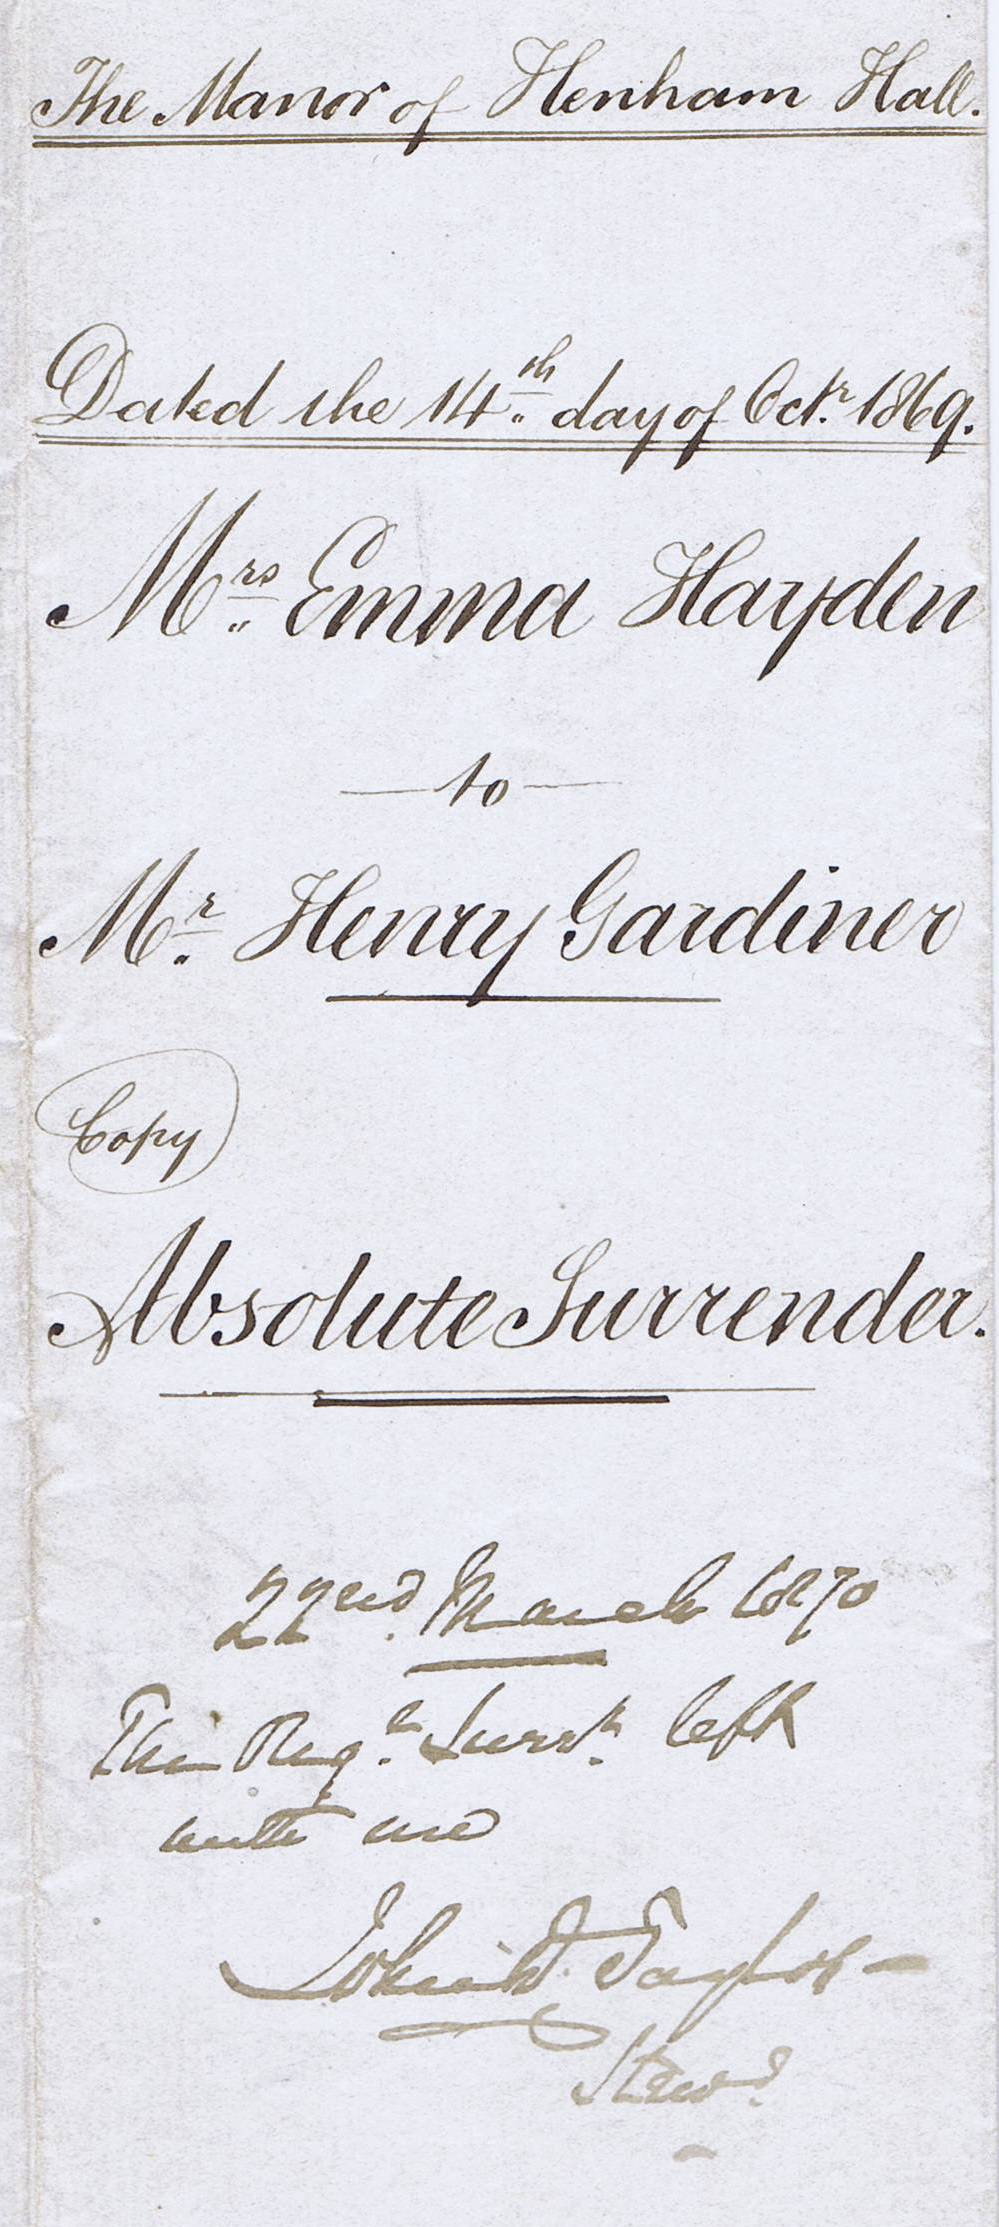 The Manor of Henham Hall.
Dated the 14th day of Octr. 1869.
Mrs Emma Hayden
— to —
Mr. Henry Gardiner
Copy
Absolute Surrender.
22nd. March 1870
This Surrr. left
with me
Taylor
Stewd.